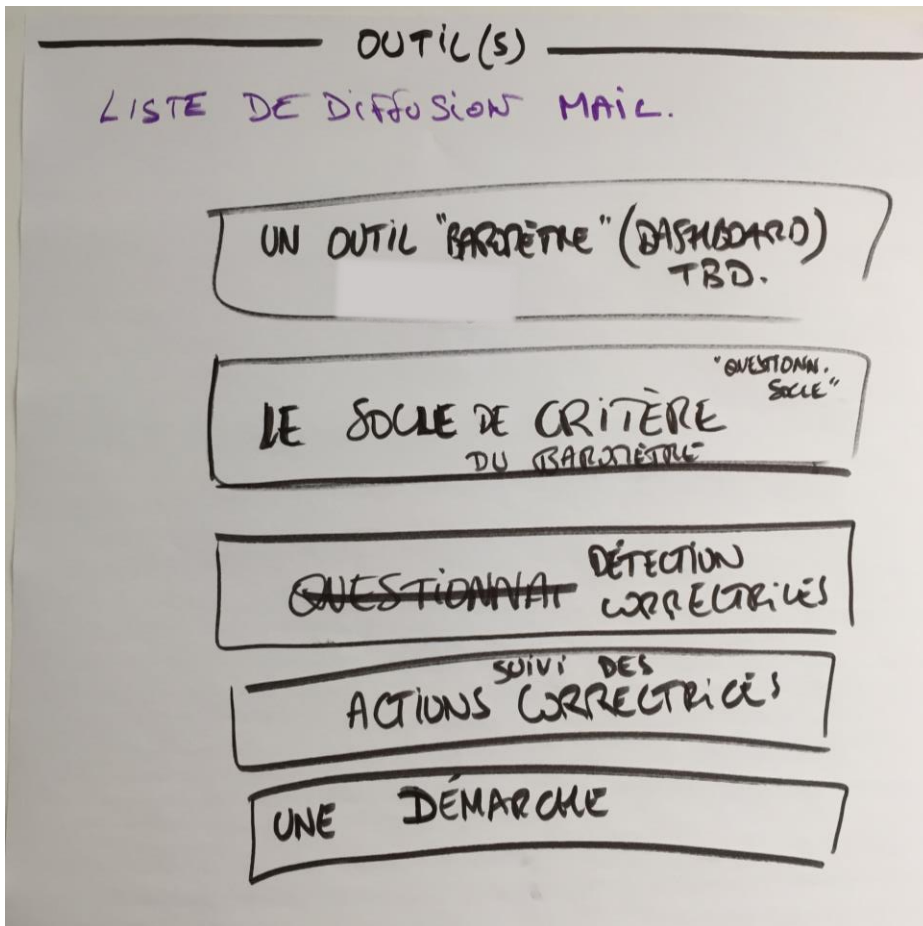 OUTIL(S)
LISTE DE DIFFUSION MAIL.
UN OUTIL "BAROMÈTRE" (DASHBOARD)
TBD.
"QUESTIONN.
SOCLE"
LE SOCLE DE CRITÈRE
DU BAROMÈTRE
QUESTIONNAI DÉTECTION
CORRECTRICES
SUIVI DES
ACTIONS CORRECTRICES
UNE DÉMARCHE